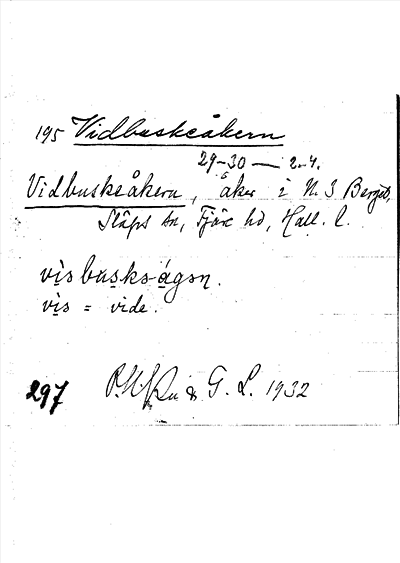 195 Vidbuskeåkern
29-30 — 2-4.
Vidbuskeåkern, åker i N. 3 Berget,
Släps sn, Fjäre hd, Hall. l.
vìsbusks-ágən.
vis = vide.
297 & G. L. 1932